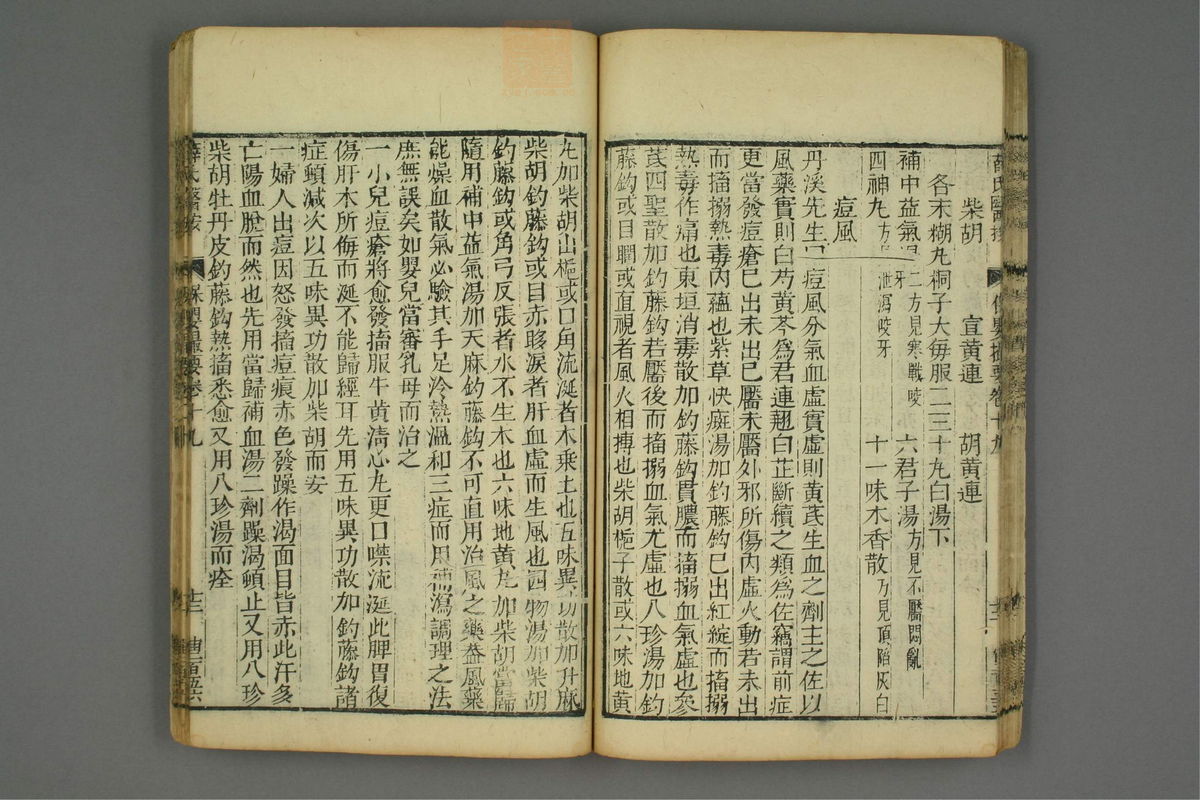 柴胡　宣黃連　胡黃連
各末糊丸桐子大每服二三十丸白湯下
補中益氣 二方見寒戰咬牙 六君子湯方見不靨悶亂
四神丸方見泄瀉咬牙 十一味木香散方見頂陷灰白
痘風
丹溪先生 痘風分氣血虛實虛則黃芪生血之劑主之佐以
風藥實則白芍黃芩爲君連翹白芷斷續之類爲佐竊謂前症
更當發痘瘡已出未出已靨未靨外邪所傷內虛火動若未出
而搐搦熱毒內蘊也紫草快癍湯加釣藤鈎已出紅綻而搐搦
熱毒作痛也東垣消毒散加釣藤鈎貫膿而搐搦血氣虛也參
芪四聖散加釣藤鈎若靨後而搐搦血氣尤虛也八珍湯加釣
藤鈎或目瞤或直視者風火相搏也柴胡梔子散或六味地黃
丸加柴胡山梔或口角流涎者木乘土也五味異功散加升麻
柴胡釣藤鈎或目赤眵淚者肝血虛而生風也四物湯加柴胡
釣藤鈎或角弓反張者水不生木也六味地黃丸加柴胡當歸
隨用補中益氣湯加天麻釣藤鈎不可直用治風之藥益風藥
能燥血散氣必驗其手足冷熱溫和三症而用補瀉調理之法
庶無誤矣如嬰兒當審乳母而治之
一小兒痘瘡將愈發搐服牛黃清心丸更口噤流涎此脾胃復
傷肝木所侮而涎不能歸經耳先用五味異功散加釣藤鈎諸
症頓減次以五味異功散加柴胡而安
一婦人出痘因怒發搐痘痕赤色發躁作渴面目皆赤此汗多
亡陽血脫而然也先用當歸補血湯二劑躁渴頓止又用八珍
柴胡牡丹皮釣藤鈎熱搐悉愈又用八珍湯而痊
薛氏醫按　保嬰撮要卷十九